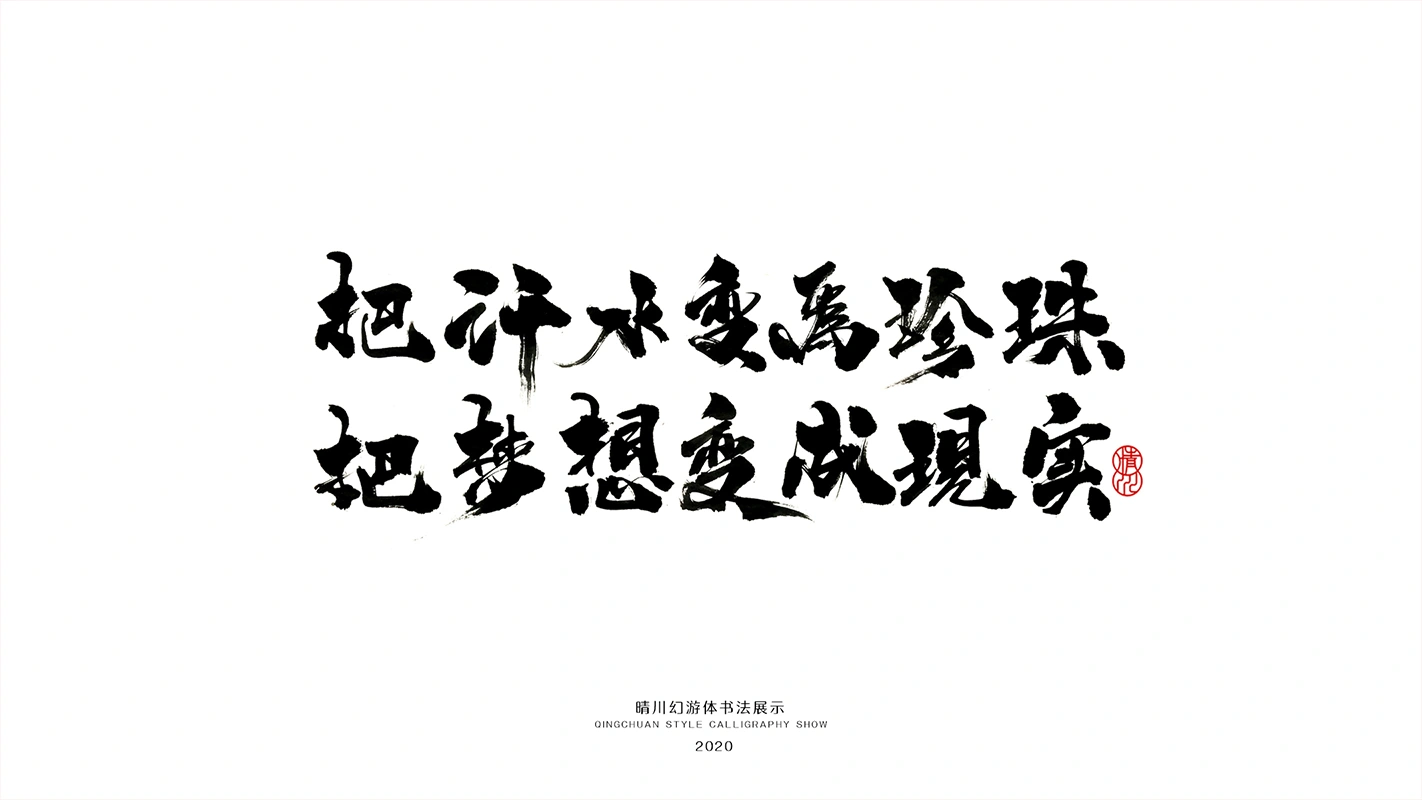 把汗水变為珍珠
把梦想变成現实
晴川
晴川幻游体书法展示
QINGCHUAN STYLE CALLIGRAPHY SHOW
2020